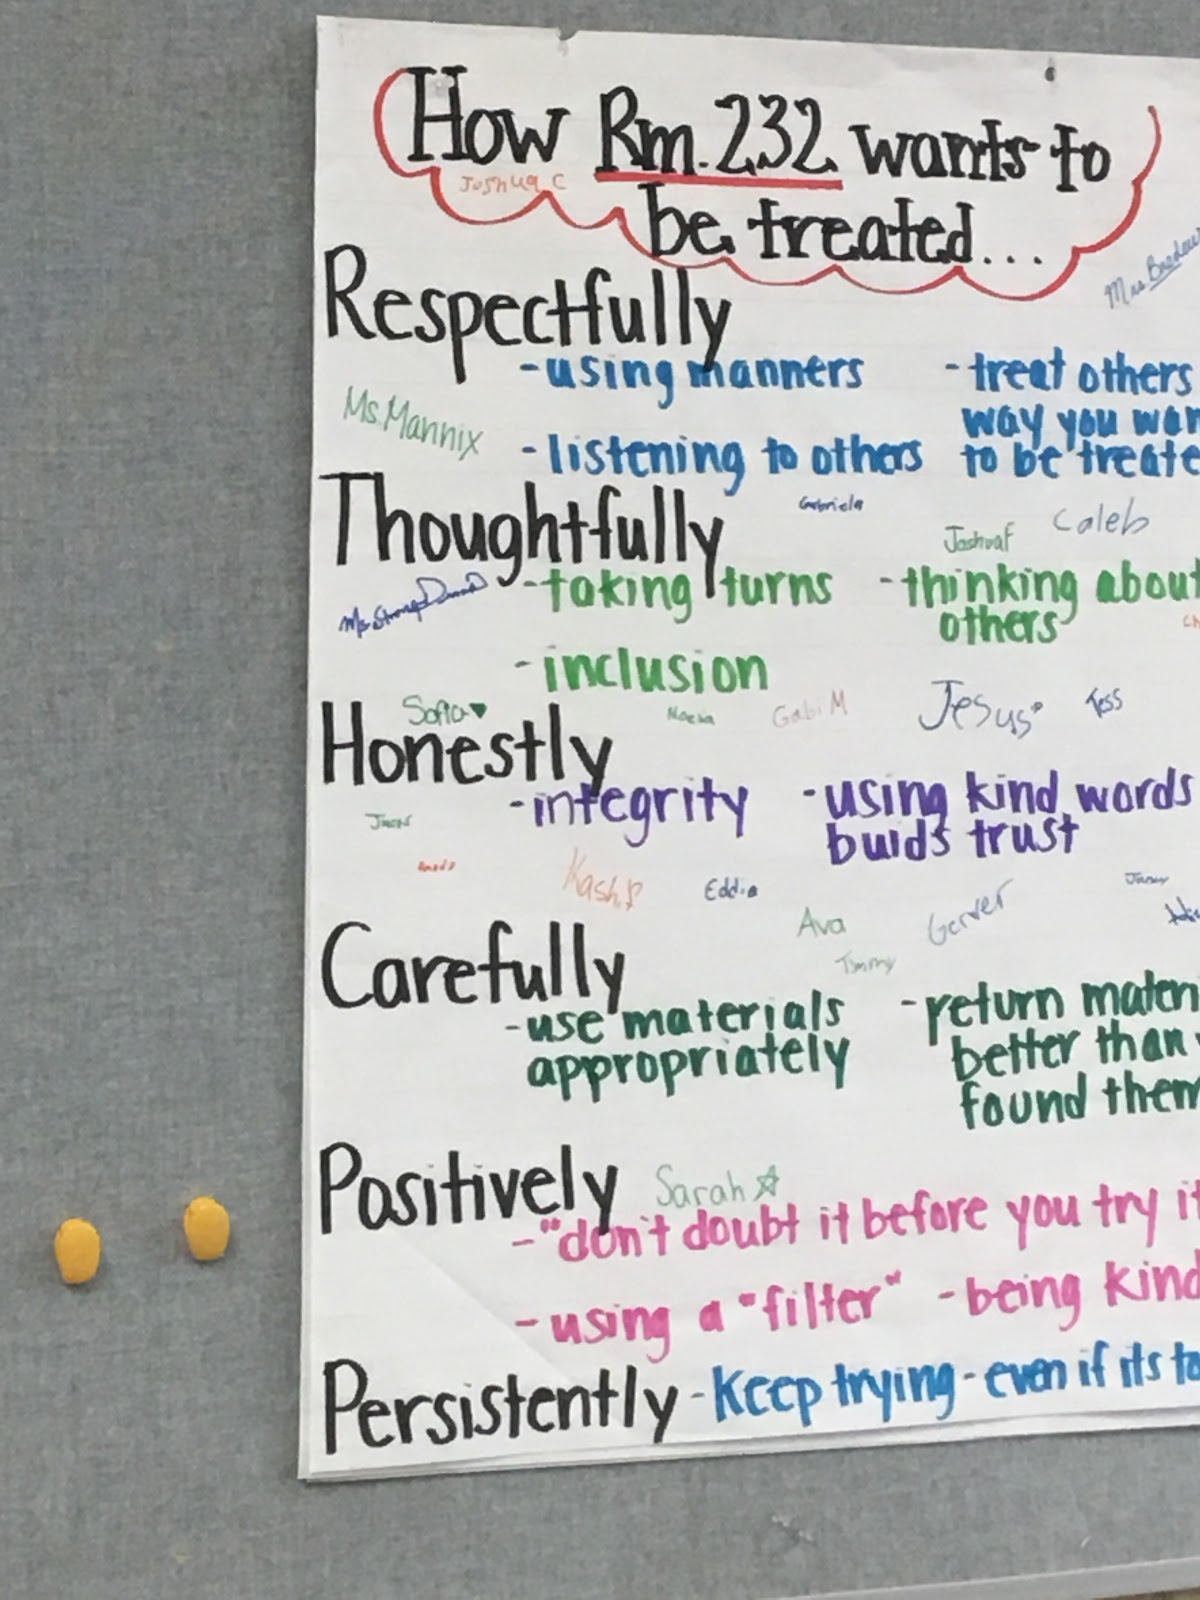 How Rm. 232 wants to
Joshua C
be treated...
Respectfully
-using manners
-treat others
way you
Ms. Mannix
-listening to others
to be
Thoughtfully
Gabriela
Caleb
Joshua F
-taking turns
-thinking about
others
-inclusion
Sofia
Gabi M
Jesus
Tess
Honestly
-integrity
-using kind words
builds trust
Kash
Eddie
Ava
Gerver
Timmy
Carefully
-use materials
appropriately
-return
better than
found them
Positively
Sarah
-"don't doubt it before you try it
-using a "filter"
-being kind
Persistently
-Keep trying-even if its